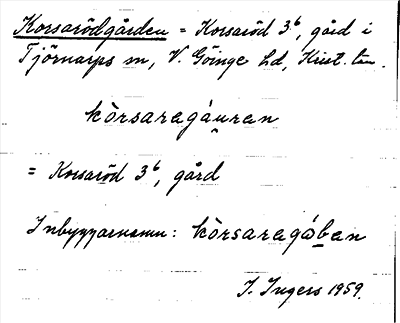 Korsarödgården = Korsaröd 3⁶, gård i
Tjörnarps sn, V. Göinge hd, Krist. län.
kòrsaragáu̯ren
= Korsaröd 3⁶, gård
Inbyggarnamn:
I. Ingers 1959.